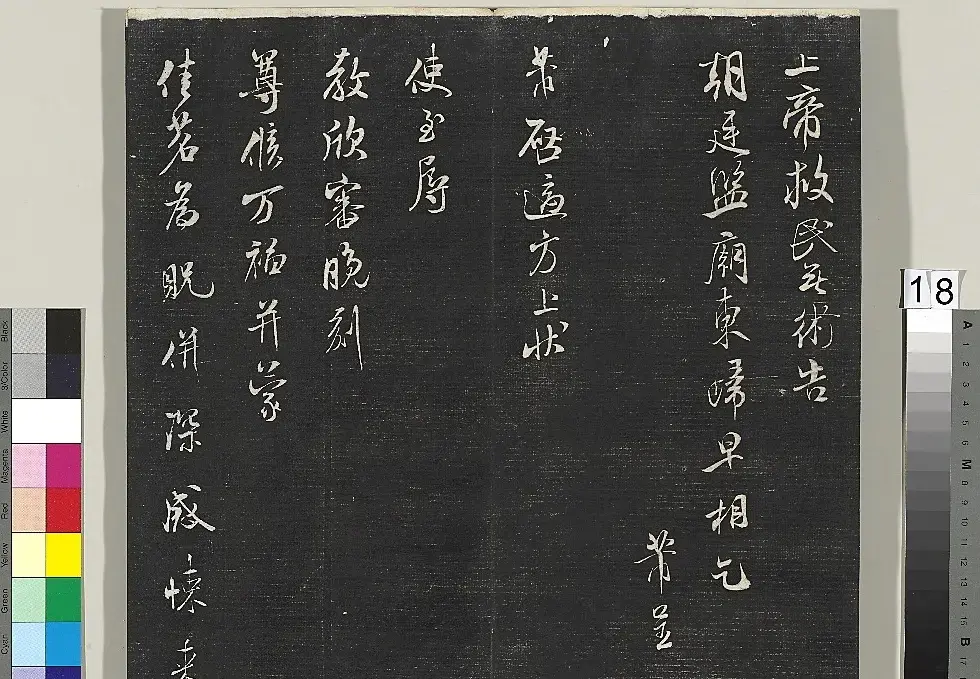 上帝救民无術告
朝廷監廟東歸早相乞
芾呈
芾啓適方上狀
使至辱
教欣審晚刻
尊候万福并蒙
佳茗為貺併深感悚
18
Black
3/Color
White
Magenta
Red
Yellow
Green
Cyan
A 1 2 3 4 5 6 M 8 9 10 11 12 13 14 15 B 17